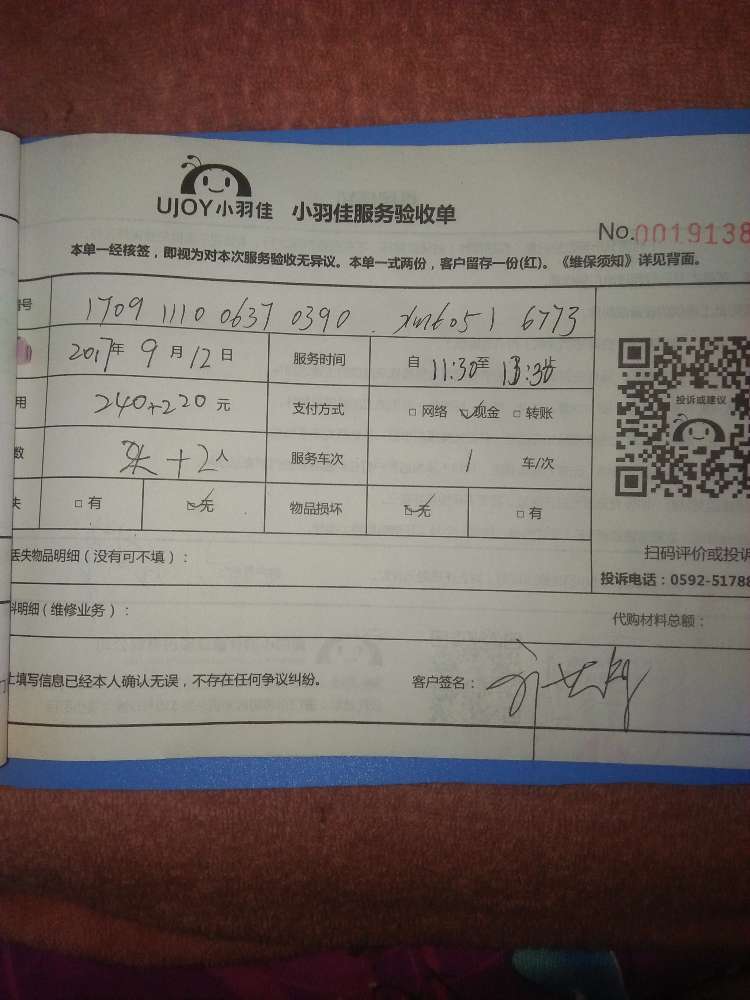 UJOY小羽佳 小羽佳服务验收单
No.0019138
本单一经核签，即视为对本次服务验收无异议。本单一式两份，客户留存一份(红)。《维保须知》详见背面。
号 1709 1110 0637 0390 xm6051 6773
2017年 9月12日 服务时间 自 11:30至 13:30止
用 240+220元 支付方式 □网络 ☑现金 □转账
数 +2人 服务车次 1 车/次
失 □有 ☑无 物品损坏 ☑无 □有
投诉或建议
扫码评价或投诉
丢失物品明细（没有可不填）：
投诉电话：0592-51788
料明细（维修业务）： 代购材料总额：
上填写信息已经本人确认无误，不存在任何争议纠纷。 客户签名：